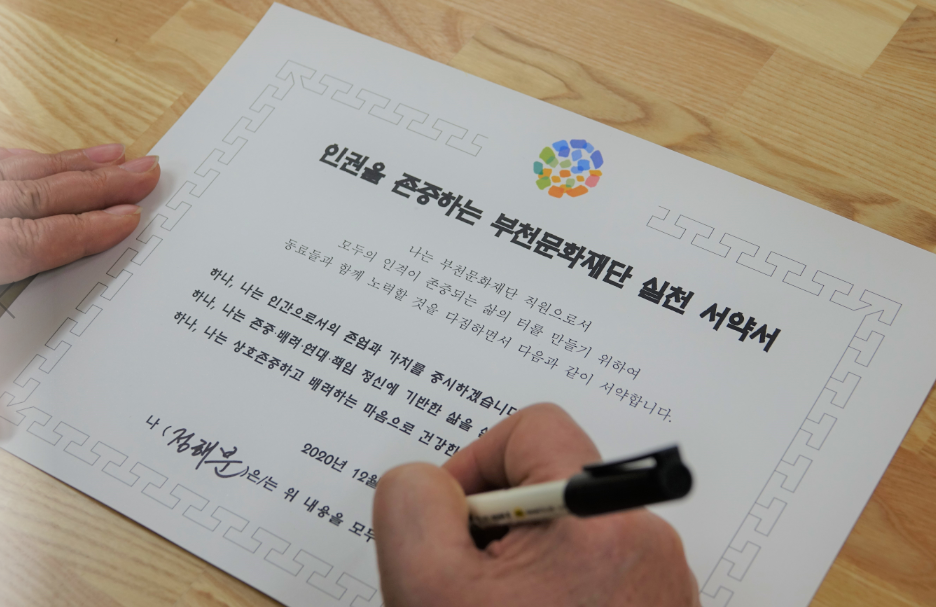 인권을 존중하는 부천문화재단 실천 서약서
나는 부천문화재단 직원으로서
모두의 인격이 존중되는 삶의 터를 만들기 위하여
동료들과 함께 노력할 것을 다짐하면서 다음과 같이 서약합니다.
하나, 나는 인간으로서의 존엄과 가치를 중시하겠습니다
하나, 나는 존중·배려·연대·책임 정신에 기반한 삶을
하나, 나는 상호존중하고 배려하는 마음으로 건강한
2020년 12월
나 (정해분)은/는 위 내용을 모두